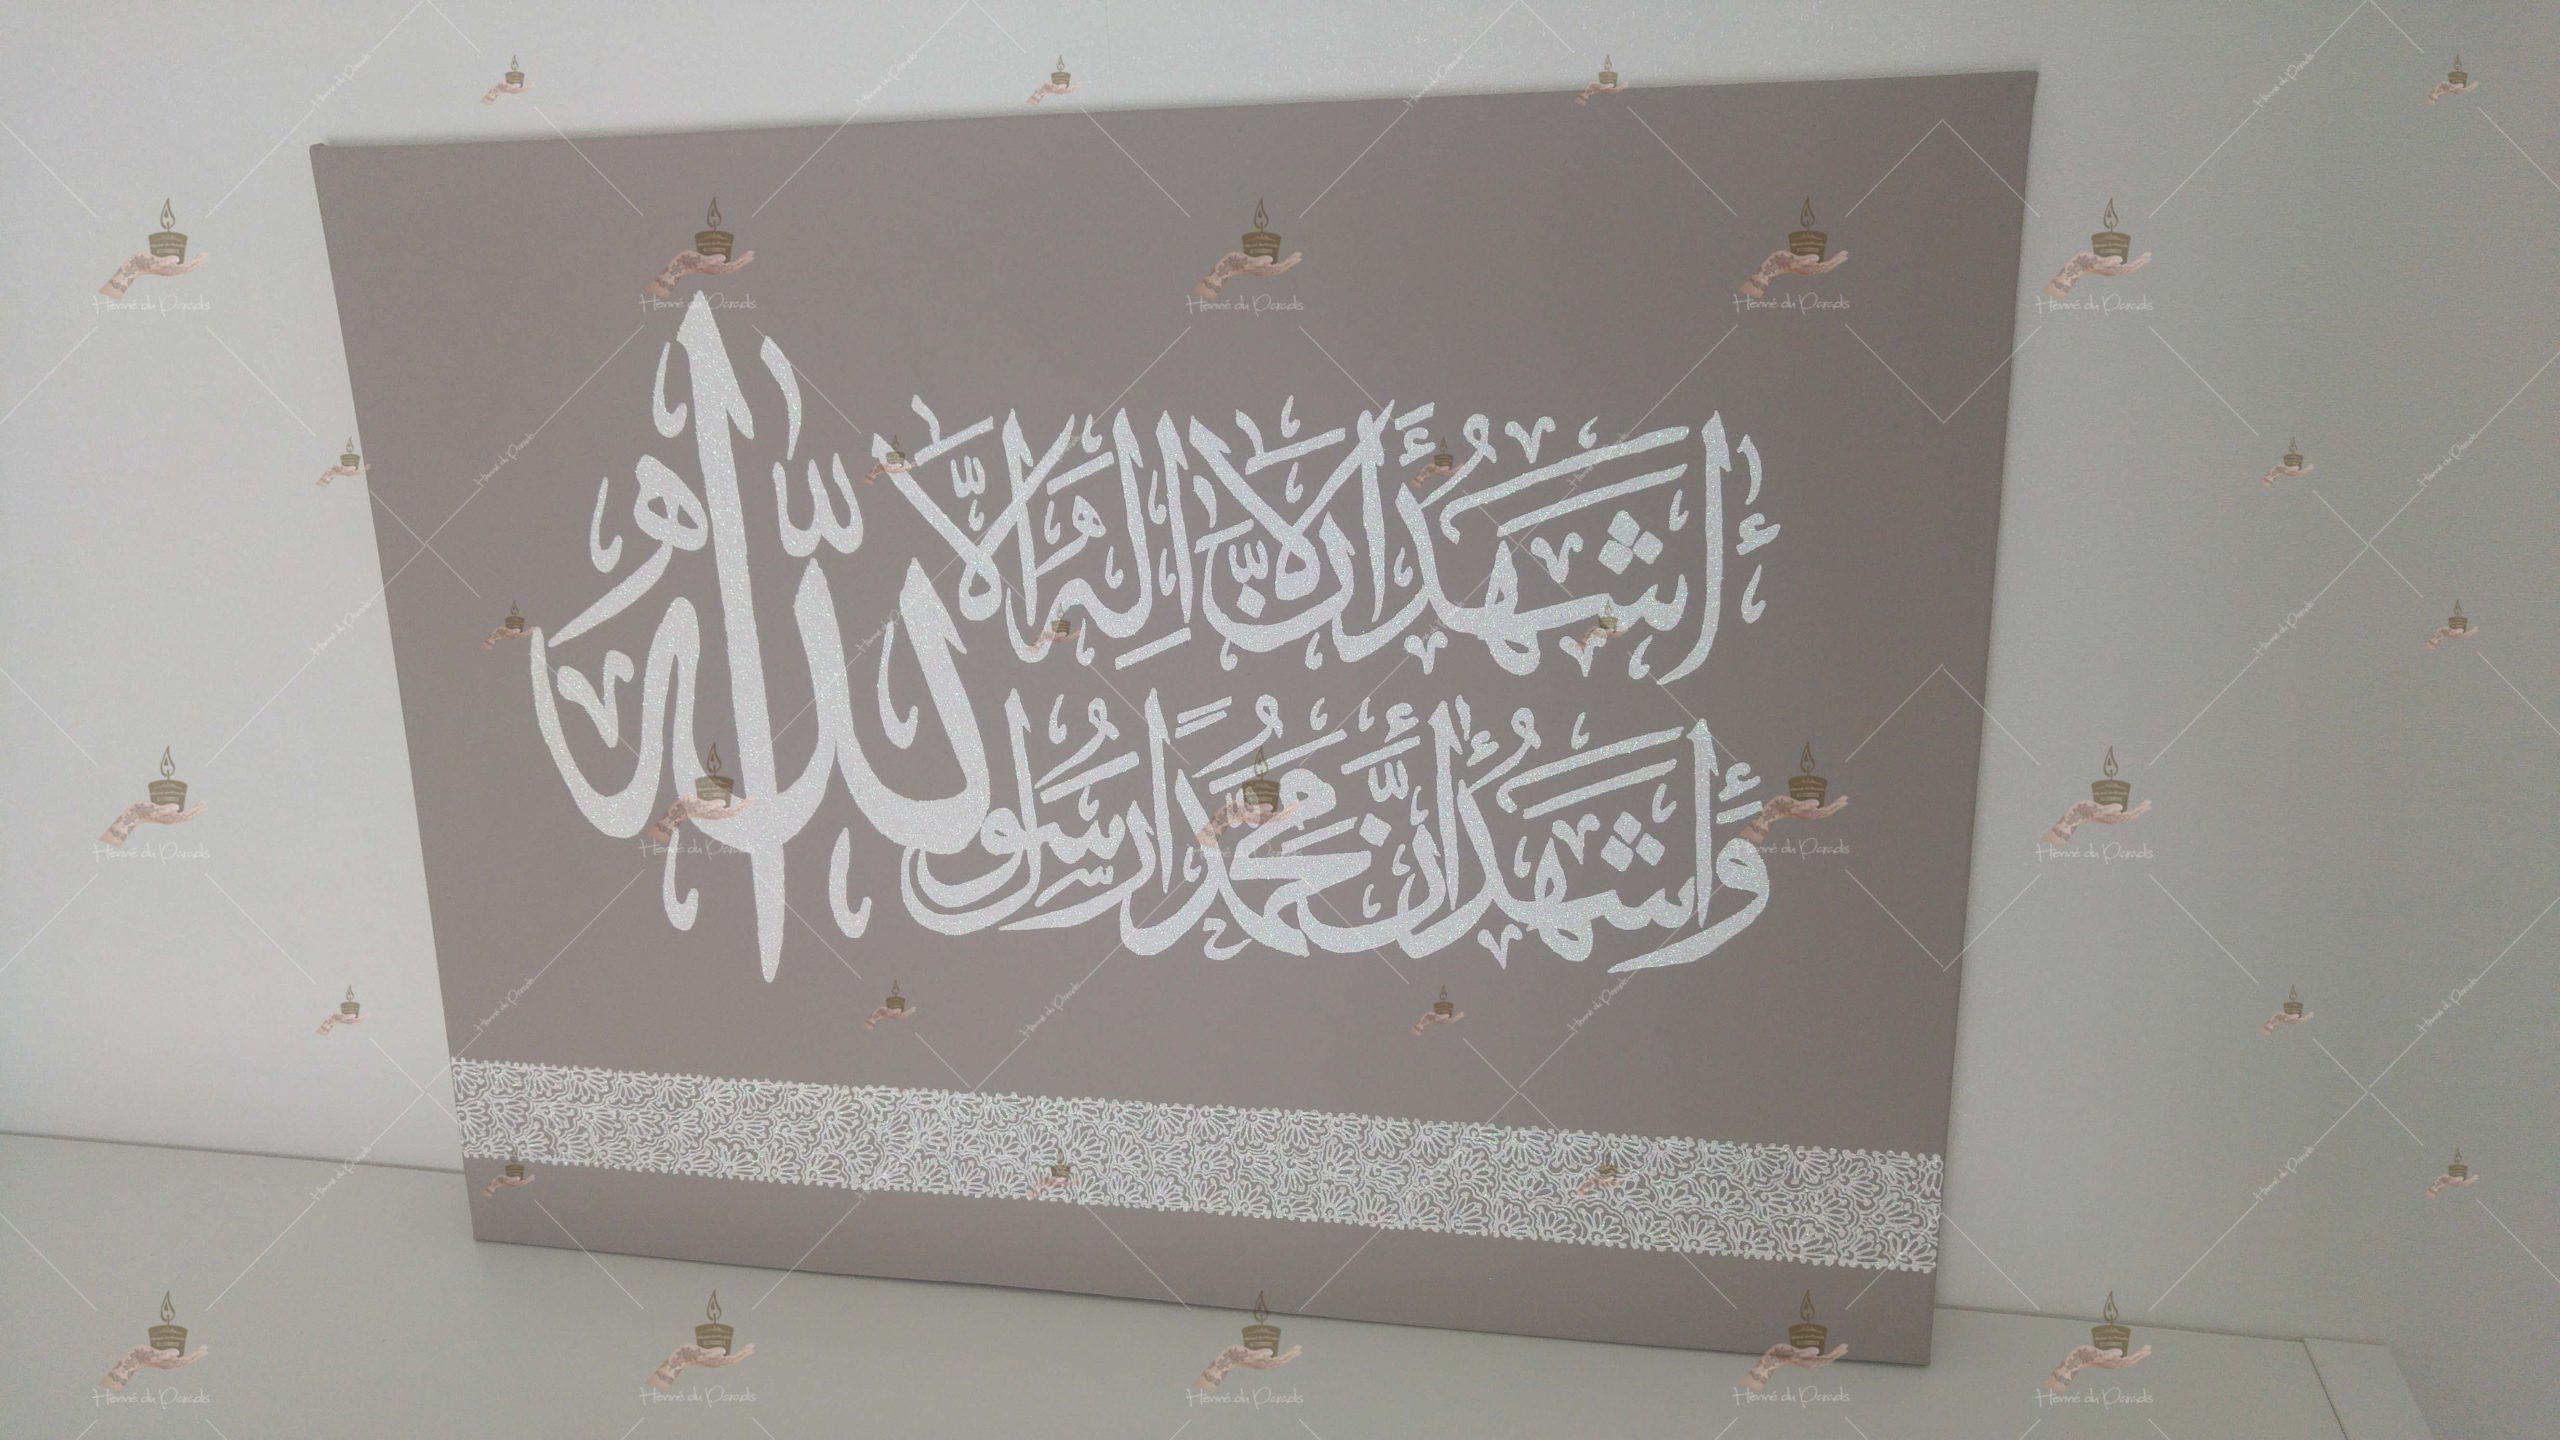 أشهد أن لا إله إلا الله
وأشهد أن محمدا رسول الله
Henné du Paradis